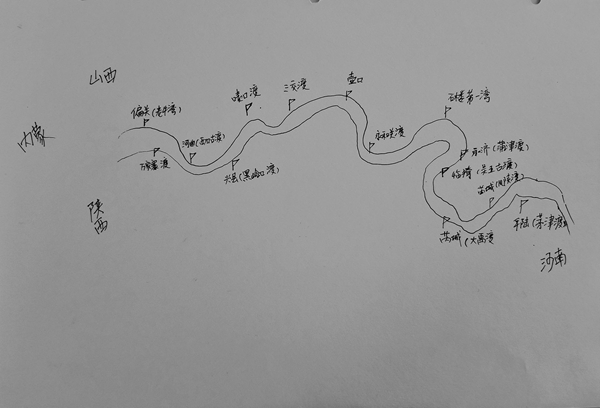 山西
内蒙
陕西
河南
偏关(老牛湾)
万家寨渡
河曲(西口古渡)
兴县(黑峪口渡)
碛口渡
三交渡
壶口
石楼第一湾
永济(蒲津渡)
临猗(吴王古渡)
芮城(风陵渡)
芮城(大禹渡
平陆(茅津渡)